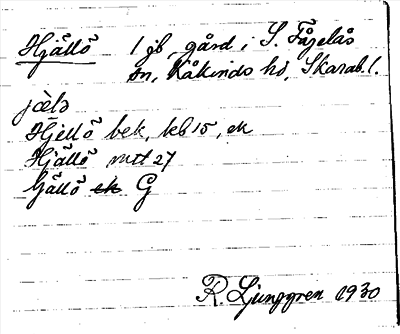 Hjällö 1 jb, gård i S. Fågelås
sn, Kåkinds hd, Skarab. l.
jæ̀lə
Hjellö bek, kb 15, ek
Hjällö mtt 27
Gällö ek G
R. Ljunggren 1930